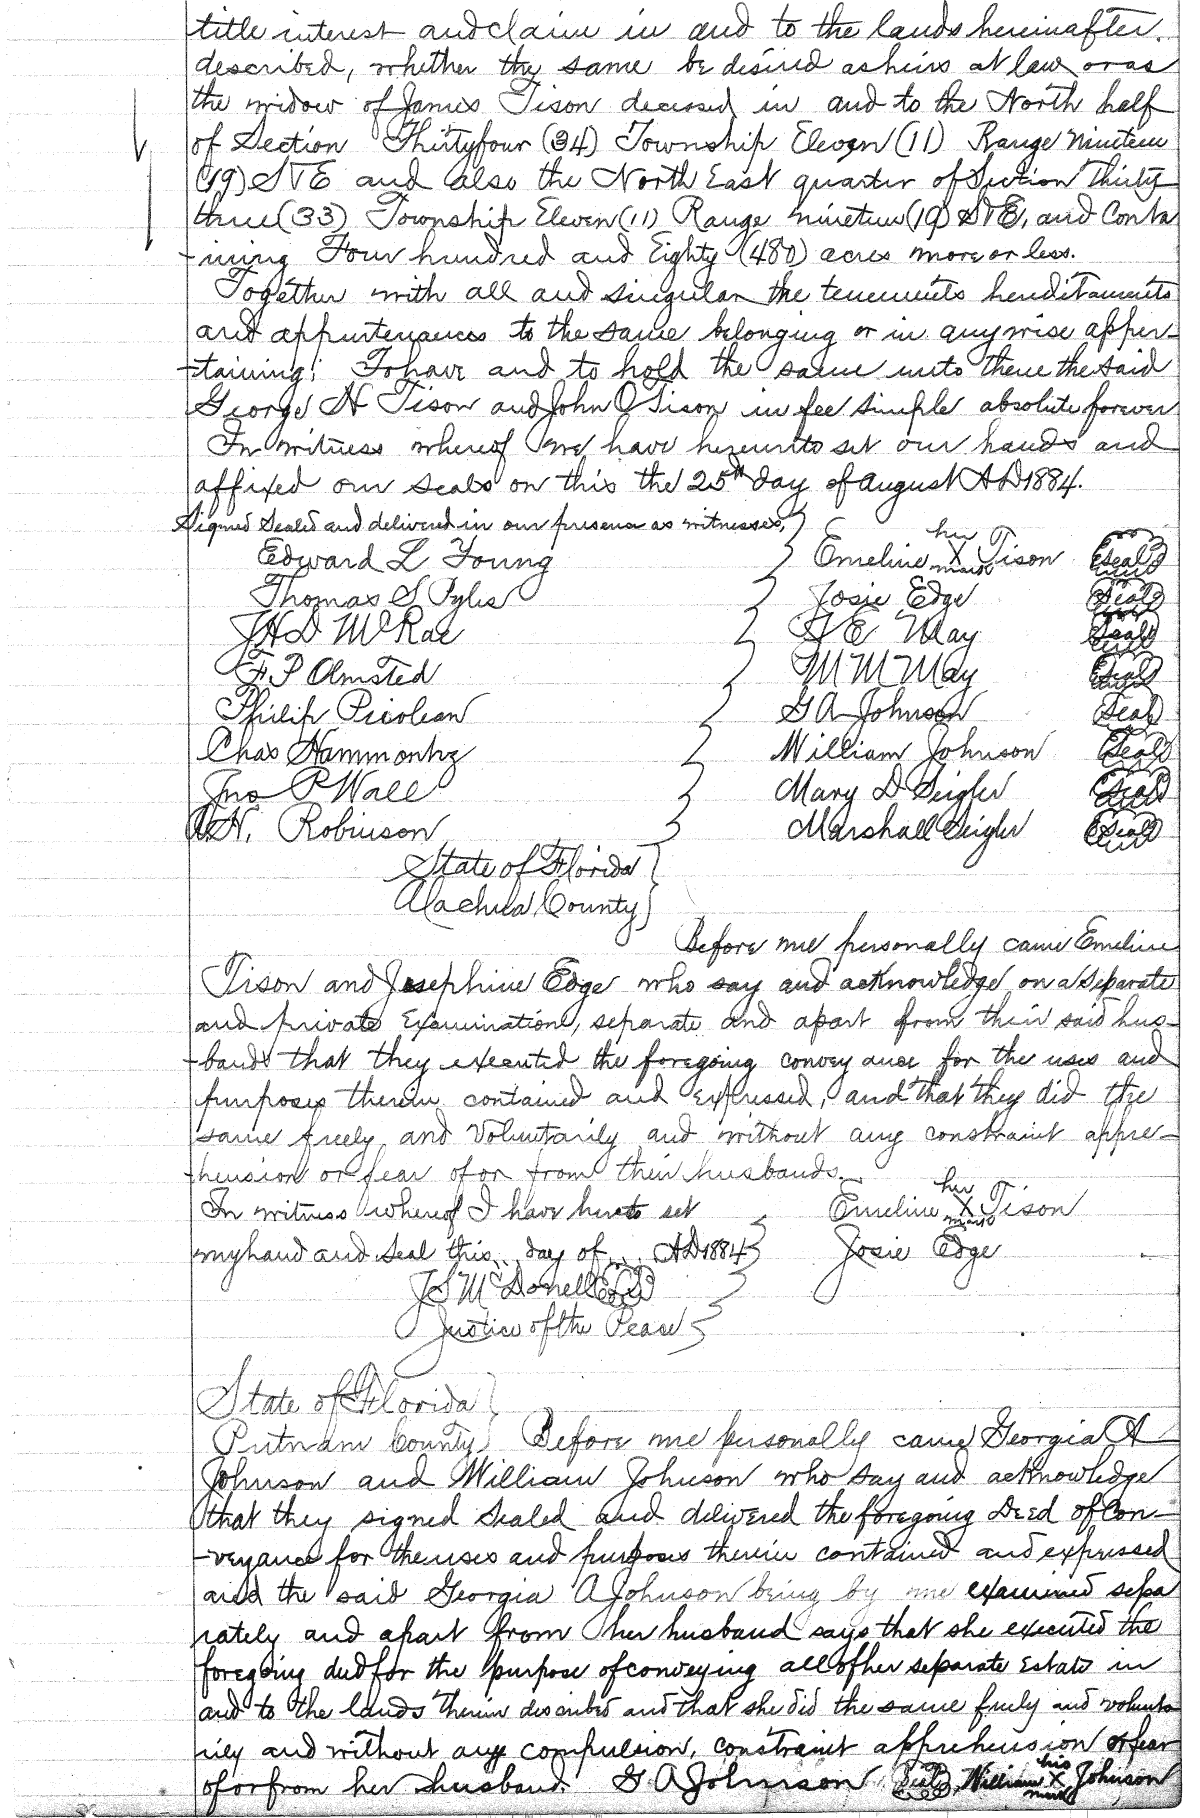 title interest and claim in and to the lands hereinafter
described, whether the same be desired as heirs at law or as
the widow of James Tison deceased in and to the North half
of Section Thirtyfour (34) Township Eleven (11) Range nineteen
(19) S & E and also the North East quarter of Section Thirty
three (33) Township Eleven (11) Range nineteen (19) S & E, and Conta
-ining Four hundred and Eighty (480) acres more or less.
Together with all and singular the tenements hereditaments
and appurtenances to the same belonging or in anywise apper-
-taining: To have and to hold the same unto them the said
George H Tison and John O Tison in fee simple absolute forever
In witness whereof we have hereunto set our hands and
affixed our seals on this the 25th day of August AD 1884.
Signed Sealed and delivered in our presence as witnesses,
Edward L Young Emeline her X mark Tison Seal
Thomas S Pyles Josie Edge Seal
J H D McRae F E May Seal
F. P Olmsted M M May Seal
Philip Picolean G A Johnson Seal
Chas Hammontz William Johnson Seal
Jno P Wall Mary D Seigler Seal
H. Robinson Marshall Seigler Seal
State of Florida
Alachua County
Before me personally came Emeline
Tison and Josephine Edge who say and acknowledge on a separate
and private Examination, separate and apart from their said hus-
-bands that they executed the foregoing conveyance for the uses and
purposes therein contained and expressed, and that they did the
same freely and voluntarily and without any constraint appre-
-hension or fear of or from their husbands.
In witness whereof I have hereto set Emeline her X mark Tison
my hand and seal this .. day of ... AD 1884 Josie Edge
J S McDonell Seal
Justice of the Peace
State of Florida
Putnam County Before me personally came Georgia A
Johnson and William Johnson who say and acknowledge
that they signed sealed and delivered the foregoing Deed of Con-
-veyance for the uses and purposes therein contained and expressed
and the said Georgia A Johnson being by me examined sepa
rately and apart from her husband says that she executed the
foregoing deed for the purpose of conveying all of her separate Estate in
and to the lands therein described and that she did the same freely and volunta
rily and without any compulsion, constraint apprehension or fear
of or from her husband. G A Johnson Seal William his X mark Johnson